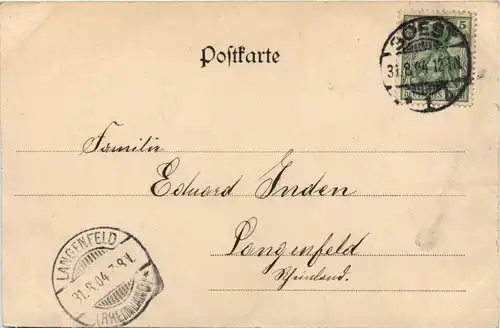 5
SOEST
31.8.04.12
Postkarte
Familie
Eduard Inden
Langenfeld
Rheinland.
LANGENFELD
31.8.04.7-8V.
(RHEINLAND)